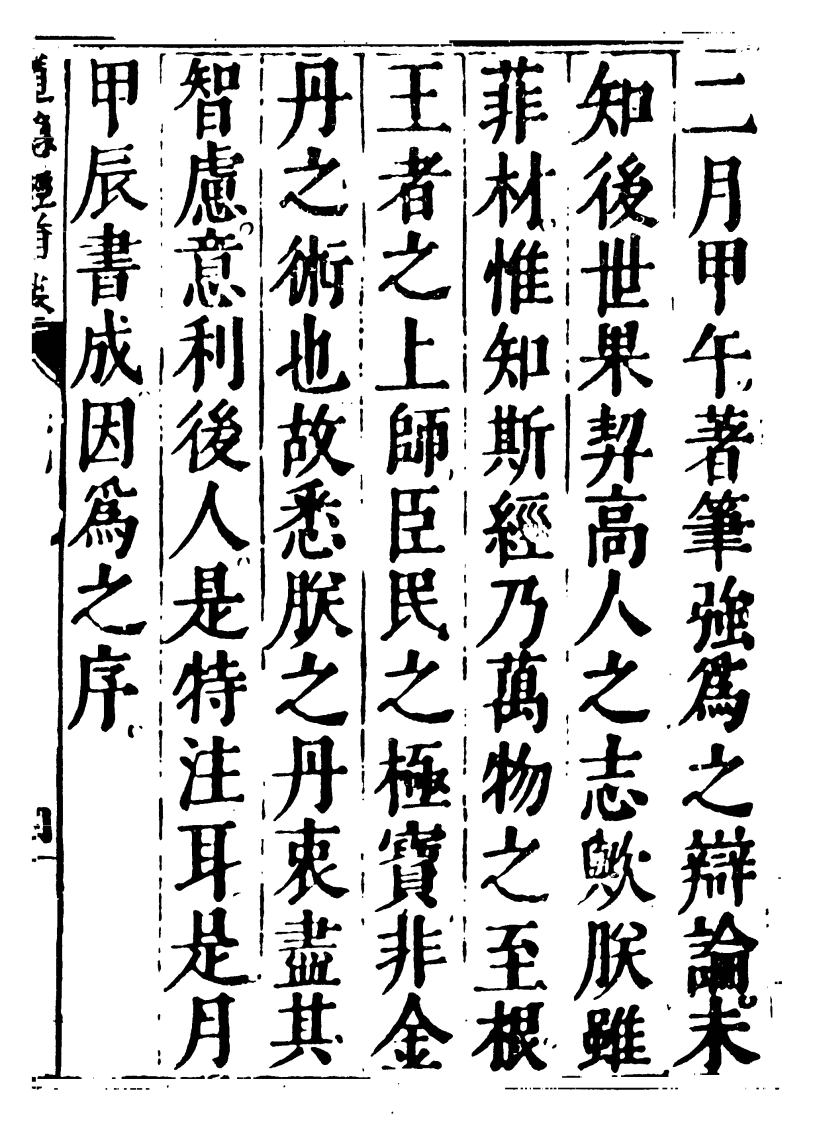 二月甲午著筆強爲之辯論未
知後世果契高人之志歟朕雖
菲材惟知斯經乃萬物之至根
王者之上師臣民之極寶非金
丹之術也故悉朕之丹衷盡其
智慮意利後人是特注耳是月
甲辰書成因爲之序